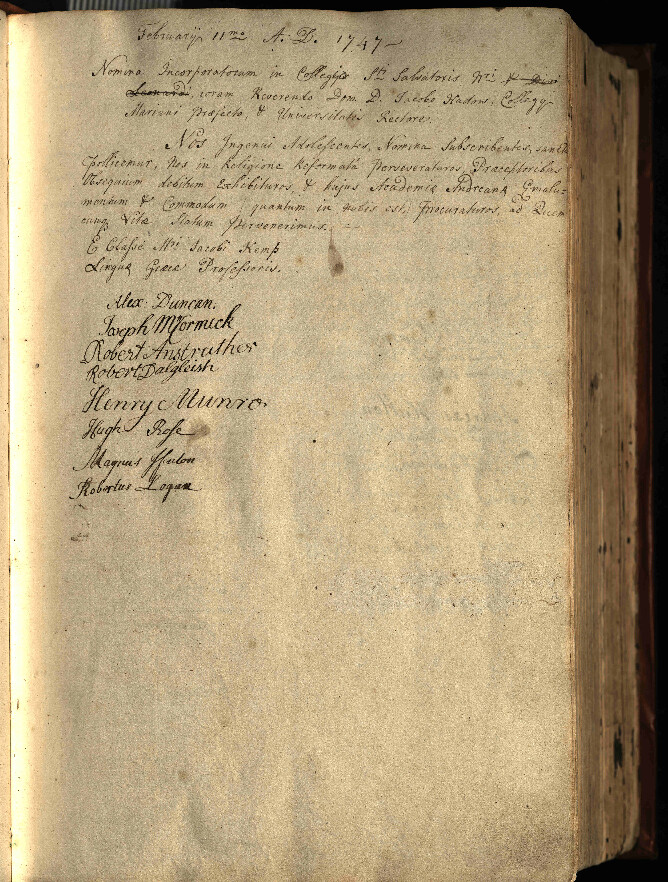 Februarij 11mo A. D. 1747
Nomina Incorporatorum in Collegijs Sti Salvatoris Nri & Divi
Leonardi, coram Reverendo Dom. D. Jacobo Hadow, Collegij
Mariani præfecto, & Universitatis Rectore.
Nos Ingenui Adolescentes, Nomina Subscribentes, sancte
Pollicemur, Nos in Religione Reformata perseveraturos, Præceptoribus
Obsequium debitum Exhibituros, & hujus Academiæ Andreanæ Emolu-
mentum & Commodum, quantum in nobis est, Procuraturos, ad Quem-
cunq Vitæ Statum pervenerimus.
E Classe Mri Jacobi Kemp
Linguæ Græcæ Professoris.
Alex: Duncan.
Joseph McCormick
Robert Anstruther
Robert Dalgleish
Henry Munro.
Hugh Rose
Magnus
Robertus Logan